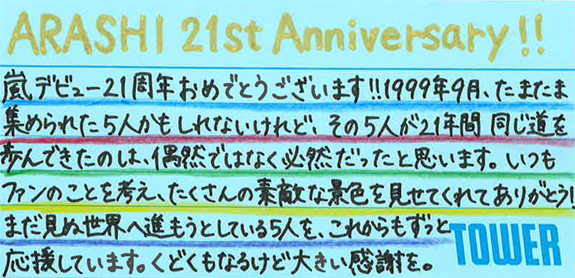 ARASHI 21st Anniversary!!
嵐デビュー21周年おめでとうございます!!1999年9月、たまたま
集められた5人かもしれないけれど、その5人が21年間同じ道を
歩んできたのは、偶然ではなく必然だったと思います。いつも
ファンのことを考え、たくさんの素敵な景色を見せてくれてありがとう!
まだ見ぬ世界へ進もうとしている5人を、これからもずっと
応援しています。くどくもなるけど大きい感謝を。
TOWER